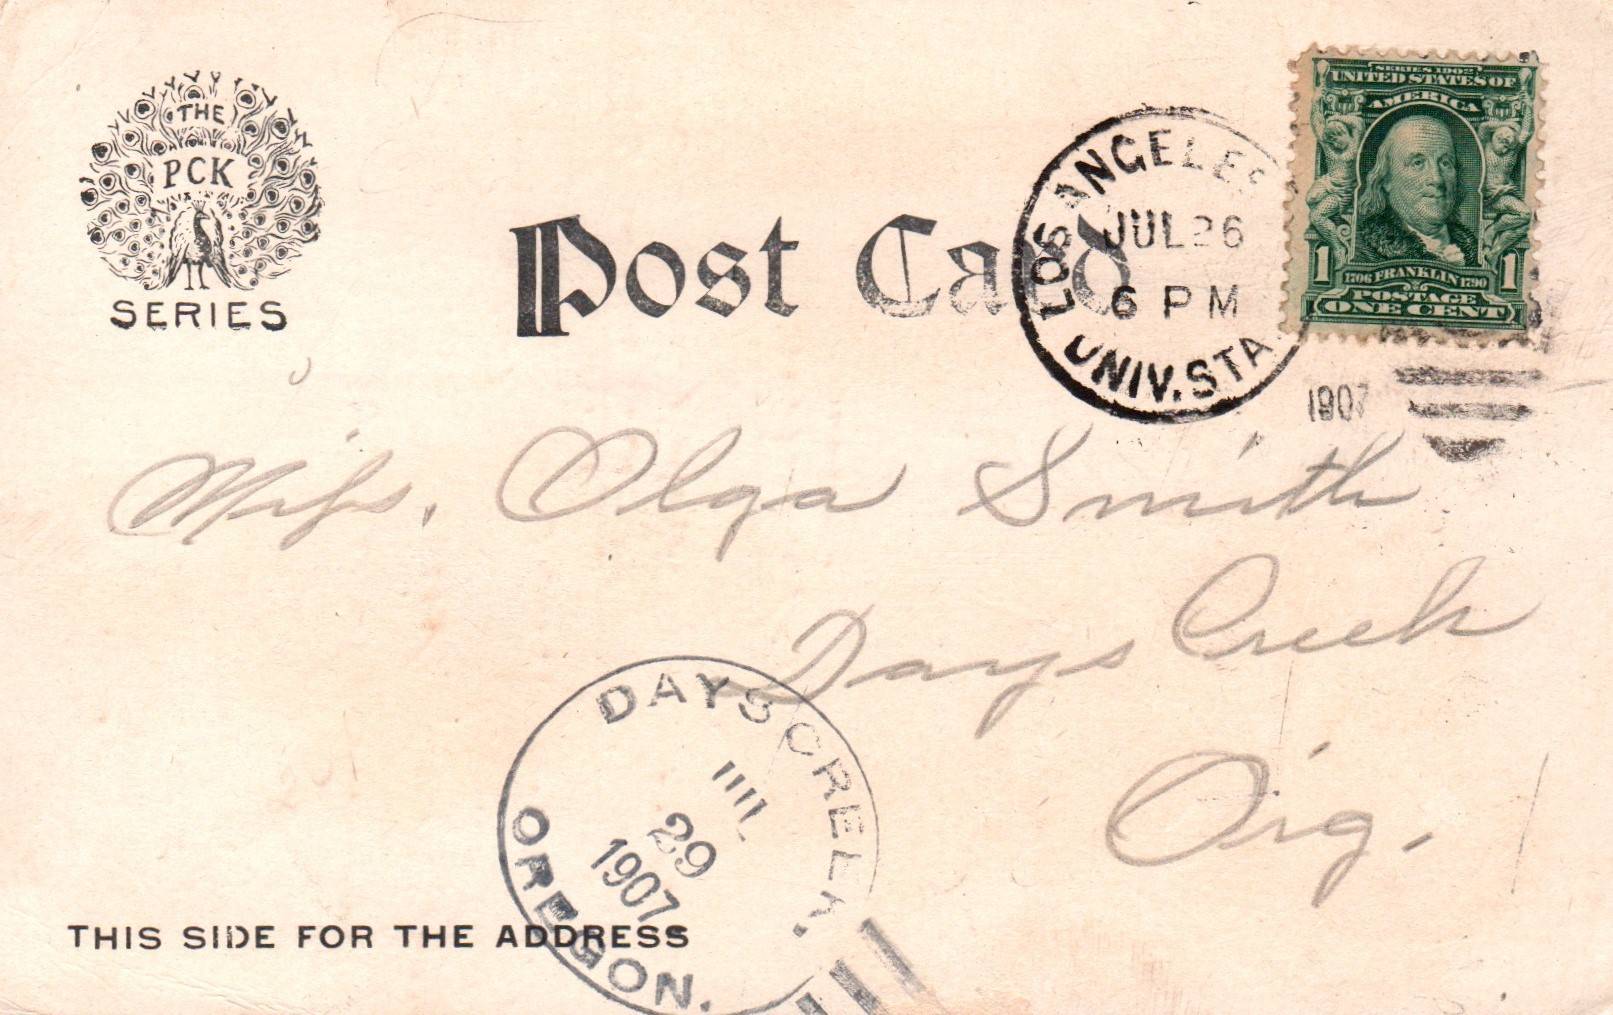 THE
PCK
SERIES
Post Card
LOS ANGELES
JUL 26
6 PM
UNIV. STA.
1907
SERIES 1902
UNITED STATES OF
AMERICA
1 1
1706 FRANKLIN 1790
POSTAGE
ONE CENT
Miss. Olga Smith
Days Creek
Orig.
DAYS CREEK.
JUL
29
1907
OREGON.
THIS SIDE FOR THE ADDRESS